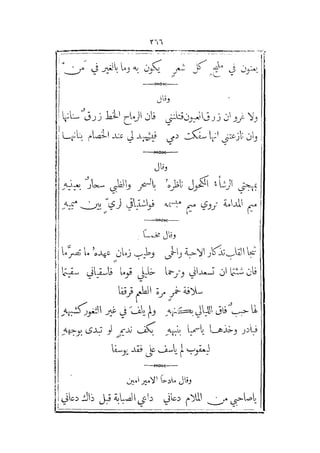 ٢٦٦
يعنون في مليح كل شعر يكون به وما بالغير في "من"
وقال
ولا غرو ان زرق العيون قتلنني فان الرماح الخط زرق سنانها
وان نازعتني انها سفكت دمي فيشهد لي عند الخصام بنانها
وقال
بمهجتي الرشأ المكحول ناظره بالسحر والظبي سحار بعينيه
ميم المدامة تروي ميم مبسمه فواشتياقي لري بين ميميه
وقال مخمسا
شجا القلب تذكار الاحبة والحمى وطيب زمان عهده ما تصرما
فان شئتما ان تسعداني وترحما خليلي قوما فاسقياني سقيتما
سلافة خمر مرة الطعم قرقفا
لها حبب فاق الليالي
ولم يلف في غير الثغور كشبهه
فبادر وخذها ياسميا بنبهه بكف نديم لو تبدى بوجهه
ليعقوب لم ياسف على فقد يوسفا
وقال مادحا الامير امين
ياصاحبي من الملام دعاني داعي الصبابة قبل ذاك دعاني